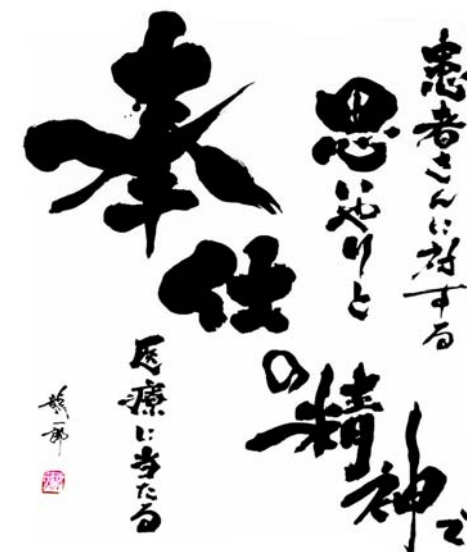 患者さんに対する
思いやりと
奉仕
の精神で
医療に当たる
龍一郎